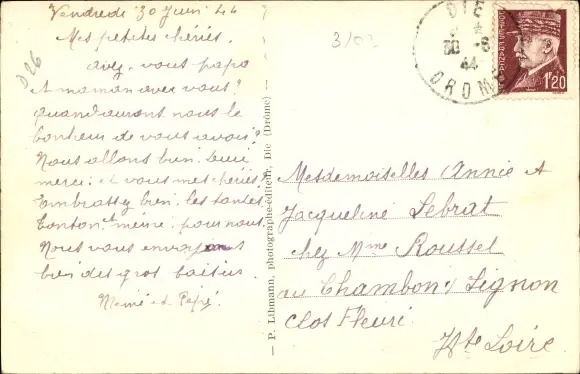 Vendredi 30 Juin 44
Mes petites chéries,
avez-vous papa
et maman avec vous?
quand aurons nous le
bonheur de vous avoir?
Nous allons bien Dieu
merci et vous mes chéries?
Embrassez bien les tantes
tonton et mémé pour nous.
Nous vous envoyons
bien des gros baisers
Mémé et Pépé
D26
3/02
P. Libmann, photographe-éditeur, Die (Drôme)
DIE
30 -6
44
DROME
1F20
Mesdemoiselles Annie et
Jacqueline Lebrat
chez Mme Roussel
au Chambon s/ Lignon
Clos Fleuri
Hte Loire